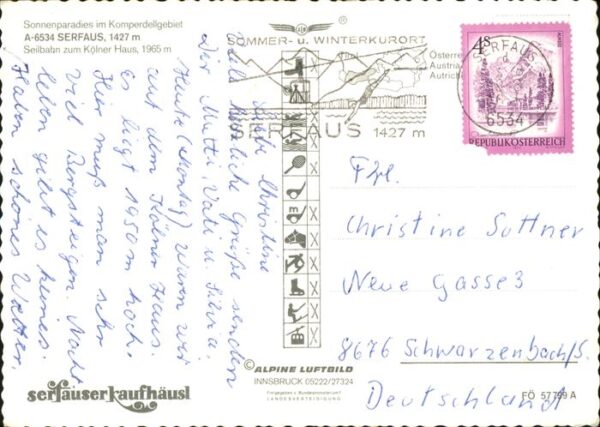 Sonnenparadies im Komperdellgebiet
A-6534 SERFAUS, 1427 m
Seilbahn zum Kölner Haus, 1965 m
SOMMER- u. WINTERKURORT
SERFAUS 1427 m
Österre
Austria
Autrich
4 S
SERFAUS
6534
REPUBLIK ÖSTERREICH
Liebe Christine
Viele herzliche Grüße senden
Dir Mutti, Vati u. Silvia.
Heute (Montag) waren wir
auf dem Kölner Haus.
Es liegt 1950 m hoch.
Hier muß man sehr
viel Bergsteigen. Nacht
leben gibt es keines.
Haben schönes Wetter.
Frl.
Christine Suttner
Neue Gasse 3
8676 Schwarzenbach/S.
Deutschland
serfauser kaufhäusl
© ALPINE LUFTBILD
INNSBRUCK 05222/27324
Freigegeben v. Bundesministerium f.
LANDESVERTEIDIGUNG
FÖ 57799 A